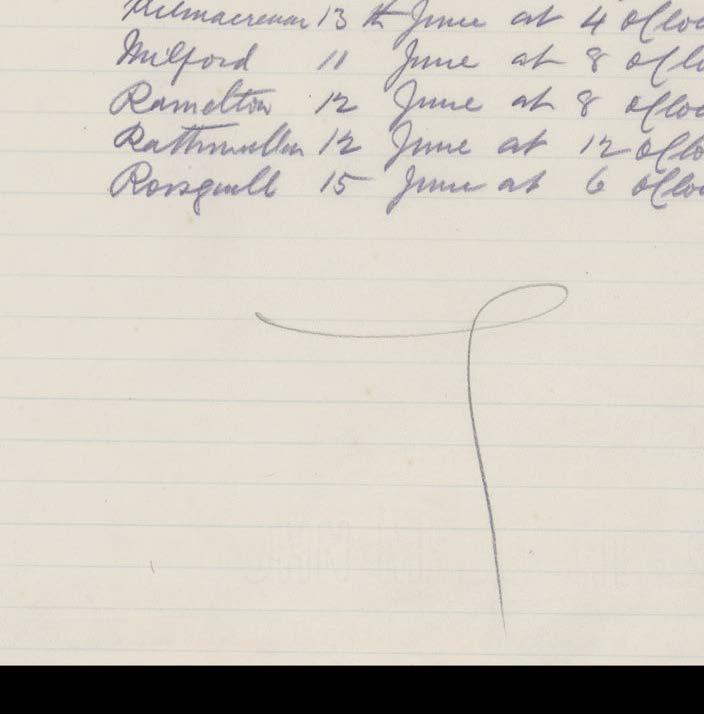 Kilmacrenan 13th June at 4 o'Cloc
Milford 11 June at 8 o'Cl
Ramelton 12 June at 8 o'Cloc
Rathmullen 12 June at 12 o'Clo
Rossguill 15 June at 6 o'Cloc